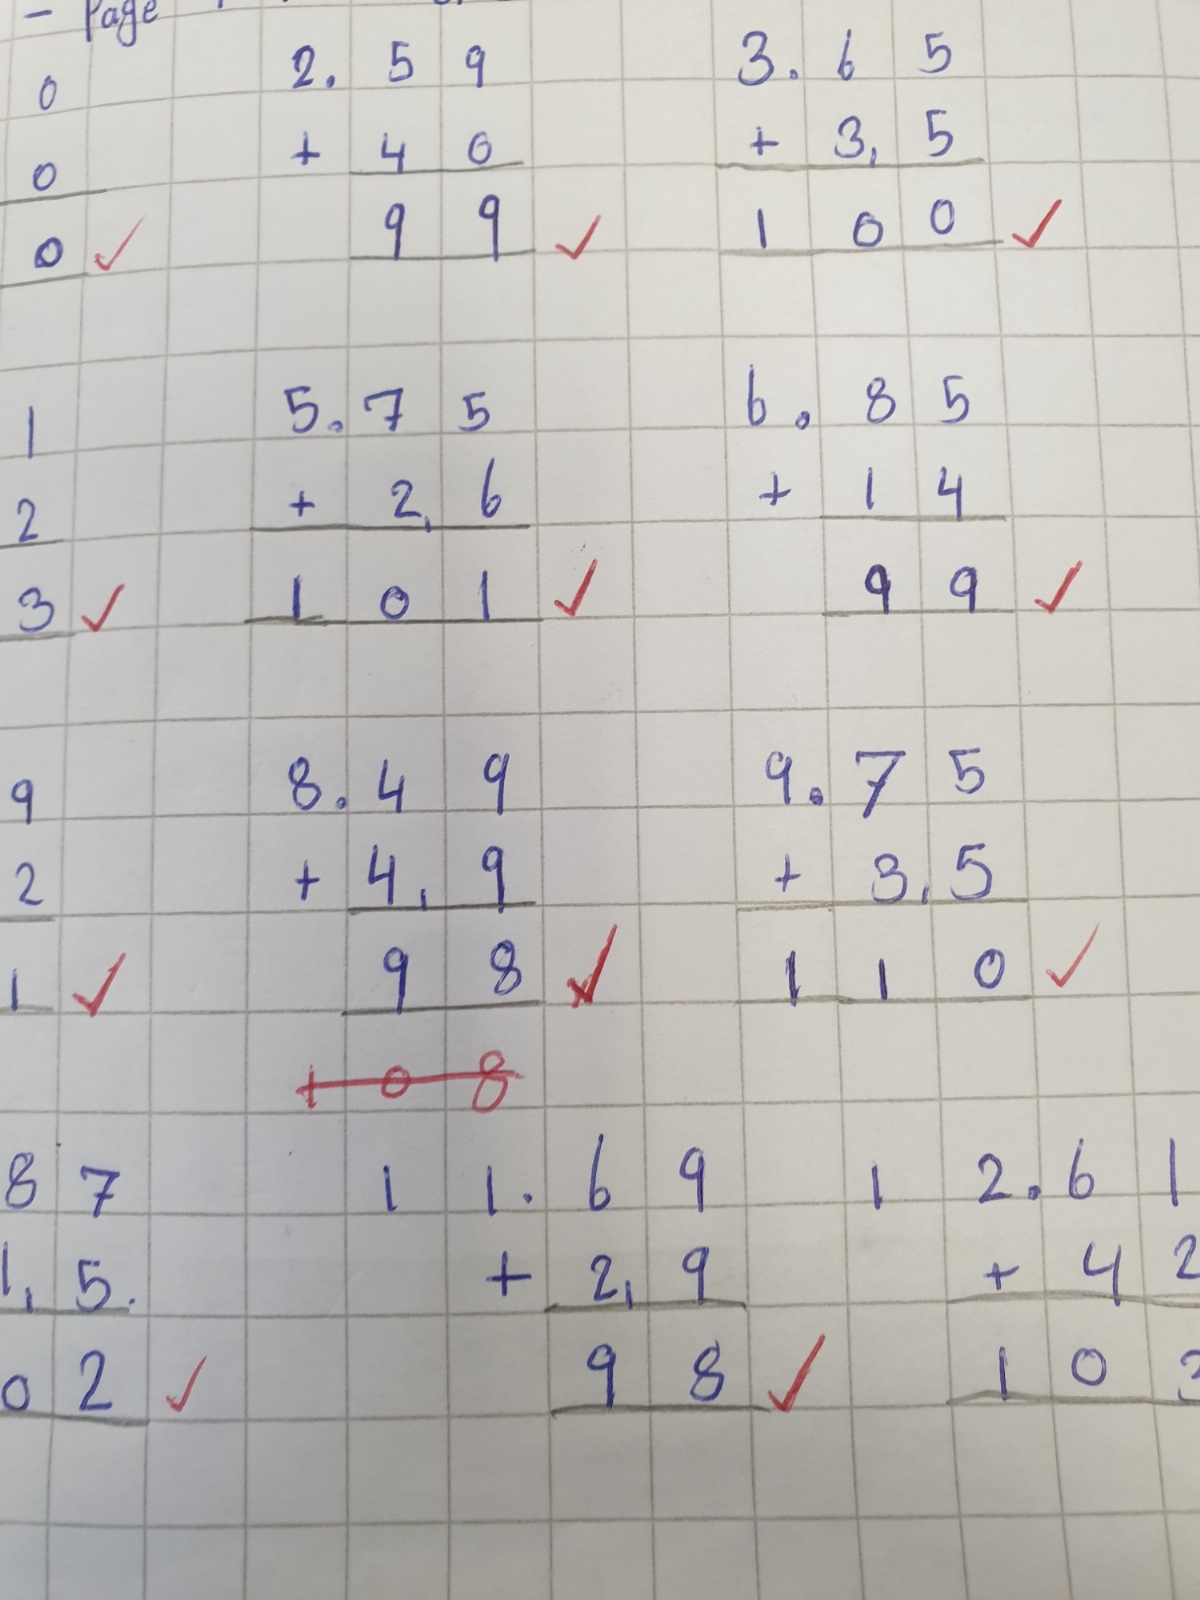 - Page
0 2. 5 9 3. 6 5
0 + 4 0 + 3, 5
0 ✓ 9 9 ✓ 1 0 0 ✓
1 5. 7 5 6. 8 5
2 + 2, 6 + 1 4
3 ✓ 1 0 1 ✓ 9 9 ✓
9 8. 4 9 9. 7 5
2 + 4, 9 + 3, 5
1 ✓ 9 8 ✓ 1 1 0 ✓
1 0 8
8 7 1 1. 6 9 1 2. 6 1
1, 5. + 2, 9 + 4 2
0 2 ✓ 9 8 ✓ 1 0 3